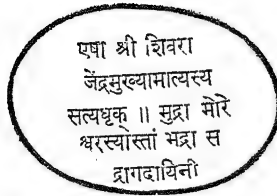 एषा श्री शिवरा
जेंद्रमुख्यामात्यस्य
सत्यधृक् ॥ मुद्रा मोरे
श्वरस्यास्तां भद्रा स
द्रागदायिनी